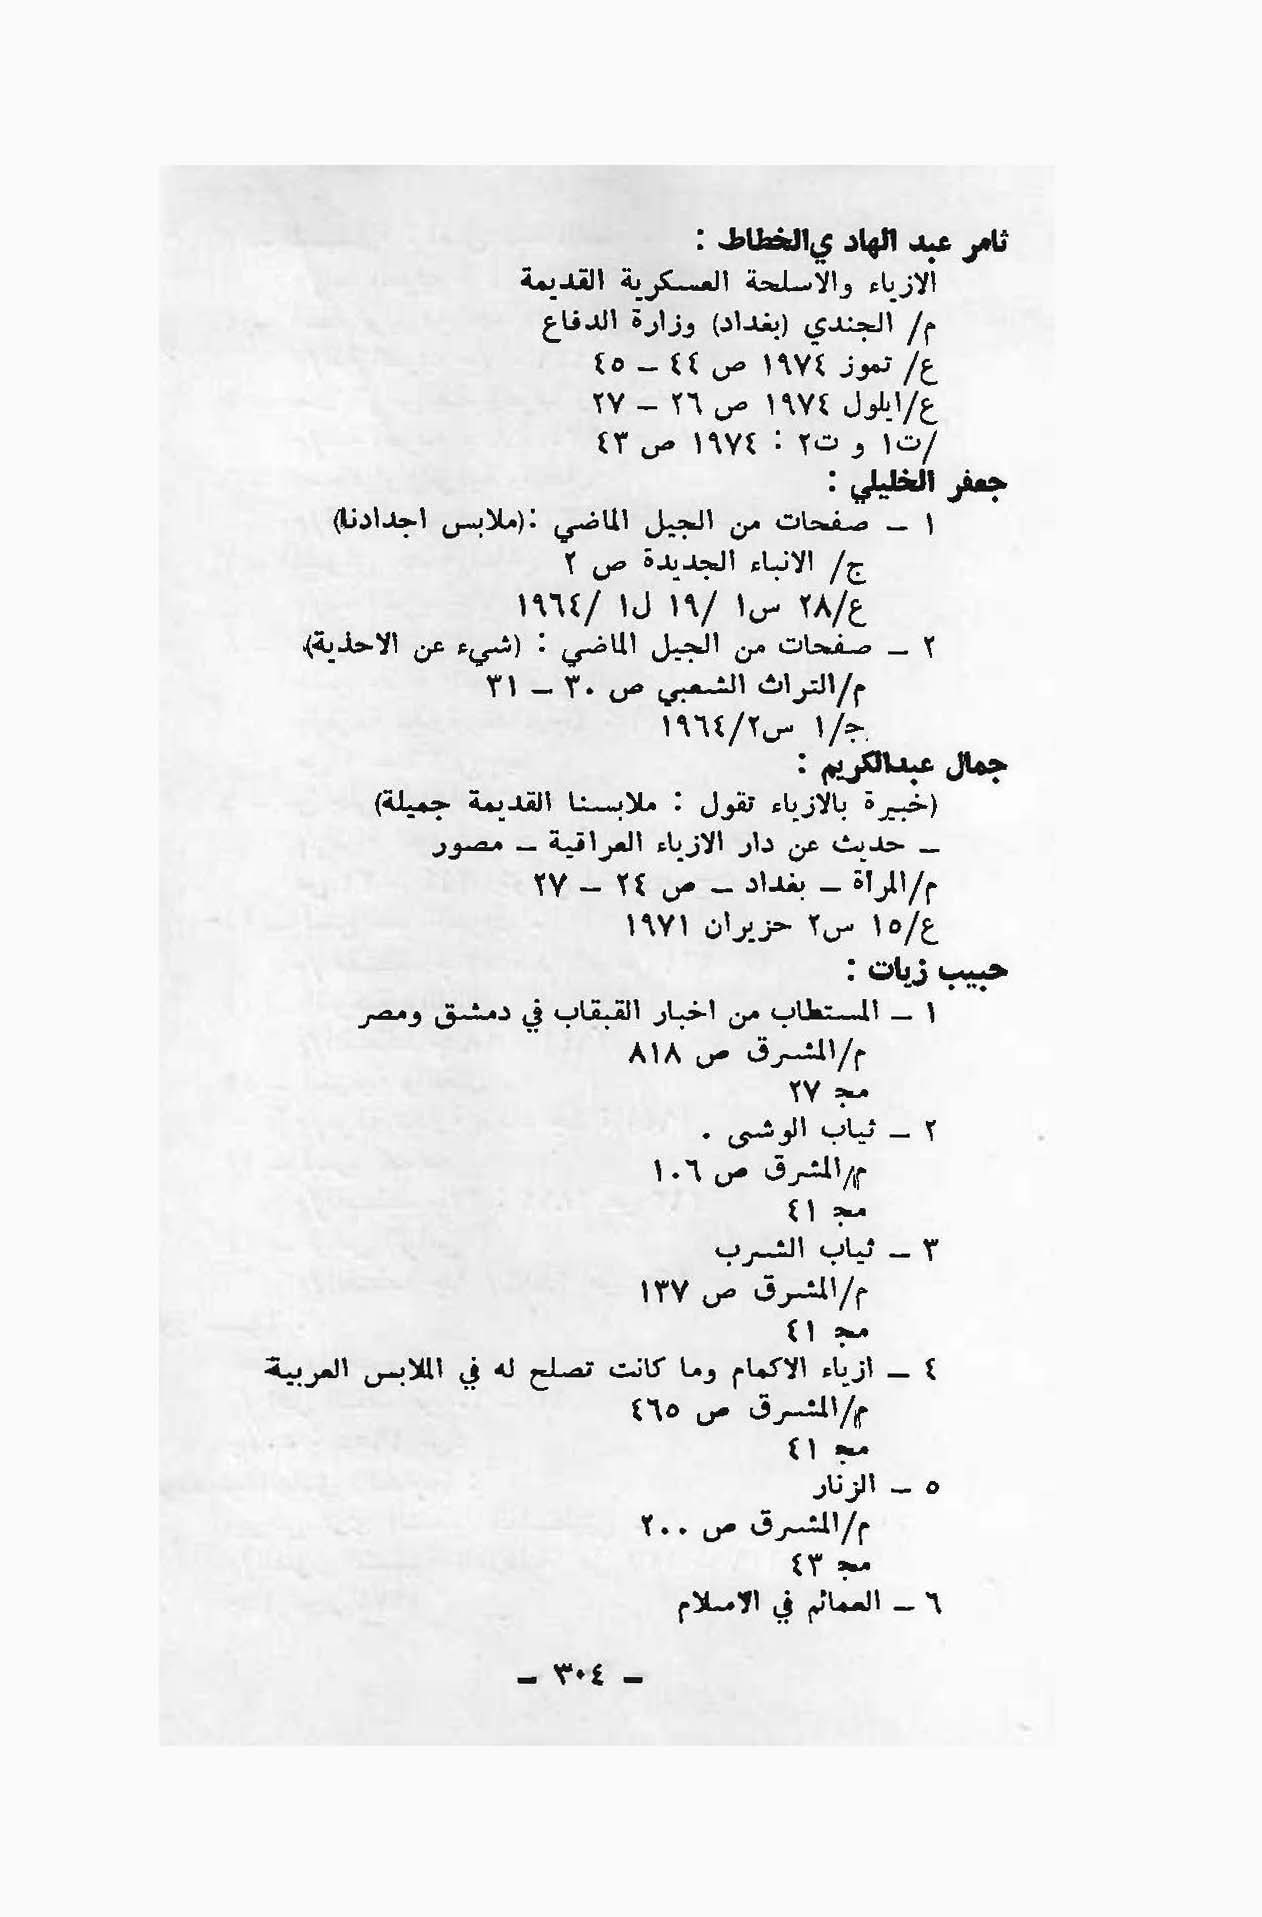 ثامر عبد الهاد ي‌الخطاط :
الازياء والاسلحة العسكرية القديمة
م/ الجندي (بغداد) وزارة الدفاع
ع/ تموز ١٩٧٤ ص ٤٤ – ٤٥
ع/ايلول ١٩٧٤ ص ٢٦ – ٢٧
/ت١ و ت٢ : ١٩٧٤ ص ٤٣
جعفر الخليلي :
١ – صفحات من الجيل الماضي :(ملابس اجدادنا)
ج/ الانباء الجديدة ص ٢
ع/٢٨ س١ /١٩ ل١ /١٩٦٤
٢ – صفحات من الجيل الماضي : (شيء عن الاحذية)
م/التراث الشعبي ص ٣٠ – ٣١
جـ/١ س٢/١٩٦٤
جمال عبدالكريم :
(خبيرة بالازياء تقول : ملابسنا القديمة جميلة)
– حديث عن دار الازياء العراقية – مصور
م/المرأة – بغداد – ص ٢٤ – ٢٧
ع/١٥ س٢ حزيران ١٩٧١
حبيب زيات :
١ – المستطاب من اخبار القبقاب في دمشق ومصر
م/المشرق ص ٨١٨
مجـ ٢٧
٢ – ثياب الوشى .
م/المشرق ص ١٠٦
مجـ ٤١
٣ – ثياب الشرب
م/المشرق ص ١٣٧
مجـ ٤١
٤ – ازياء الاكمام وما كانت تصلح له في الملابس العربية
م/المشرق ص ٤٦٥
مجـ ٤١
٥ – الزنار
م/المشرق ص ٢٠٠
مجـ ٤٣
٦ – العمائم في الاسلام
– ٣٠٤ –